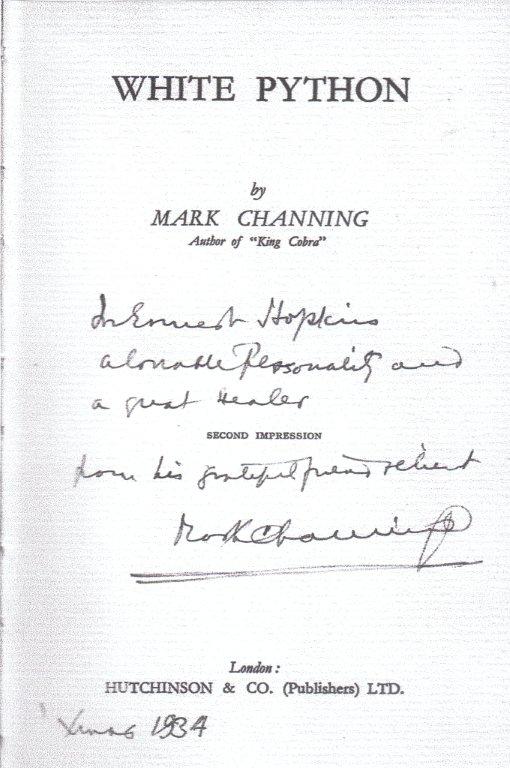 WHITE PYTHON
by
MARK CHANNING
Author of "King Cobra"
To Ernest Hopkins
a lovable Personality and
a great Healer
SECOND IMPRESSION
from his grateful friend & client
Mark Channing
London:
HUTCHINSON & CO. (Publishers) LTD.
Xmas 1934